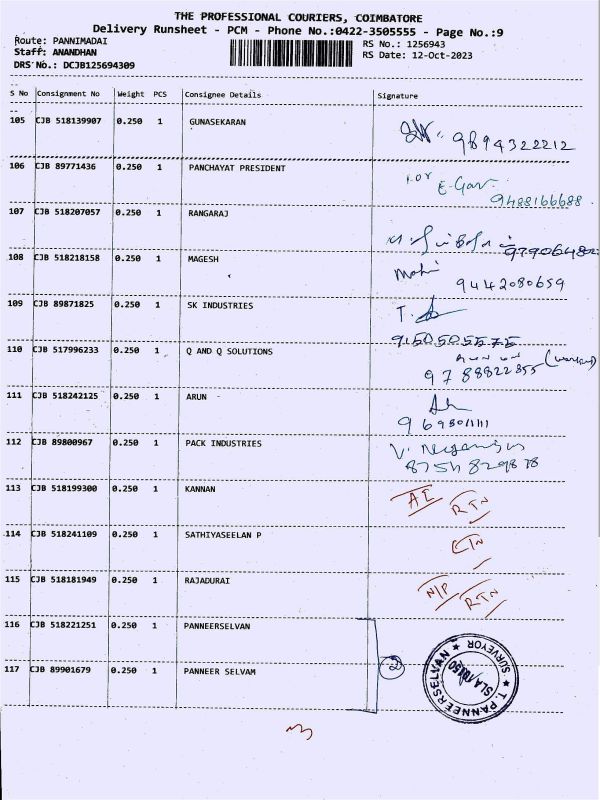 THE PROFESSIONAL COURIERS, COIMBATORE
Delivery Runsheet - PCM - Phone No.:0422-3505555 - Page No.:9
Route: PANNIMADAI
RS No.: 1256943
Staff: ANANDHAN
RS Date: 12-Oct-2023
DRS No.: DCJB125694309
S No Consignment No Weight PCS Consignee Details Signature
105 CJB 518139907 0.250 1 GUNASEKARAN
9894322212
106 CJB 89771436 0.250 1 PANCHAYAT PRESIDENT
for
9488166688
107 CJB 518207057 0.250 1 RANGARAJ
108 CJB 518218158 0.250 1 MAGESH
9442080659
109 CJB 89871825 0.250 1 SK INDUSTRIES
110 CJB 517996233 0.250 1 Q AND Q SOLUTIONS
9788822855
111 CJB 518242125 0.250 1 ARUN
112 CJB 89800967 0.250 1 PACK INDUSTRIES
113 CJB 518199300 0.250 1 KANNAN
AI RTN
114 CJB 518241109 0.250 1 SATHIYASEELAN P
115 CJB 518181949 0.250 1 RAJADURAI
N/P RTN
116 CJB 518221251 0.250 1 PANNEERSELVAN
117 CJB 89901679 0.250 1 PANNEER SELVAM
2
T. PANNEERSELVAN
SURVEYOR